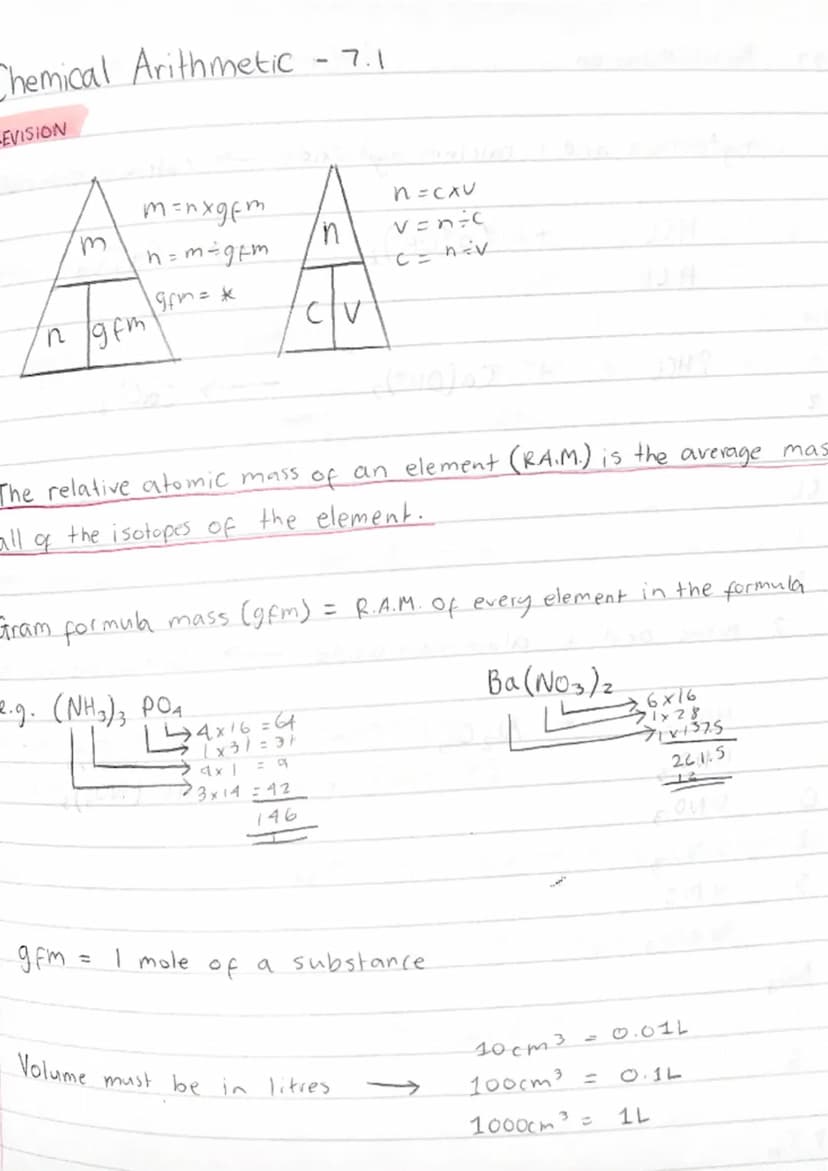 Chemical Arithmetic - 7.1
REVISION
m = n x gfm
n = m ÷ gfm
gfm = *
m
n gfm
n = c x v
v = n ÷ c
c = n ÷ v
n
c v
The relative atomic mass of an element (R.A.M.) is the average mas
all of the isotopes of the element.
Gram formula mass (gfm) = R.A.M. of every element in the formula
e.g. (NH3)3 PO4
4 x 16 = 64
1 x 31 = 31
9 x 1 = 9
3 x 14 = 42
146
Ba(NO3)2
6 x 16
1 x 28
1 x 137.5
261.5
gfm = 1 mole of a substance
Volume must be in litres →
10cm³ = 0.01L
100cm³ = 0.1L
1000cm³ = 1L